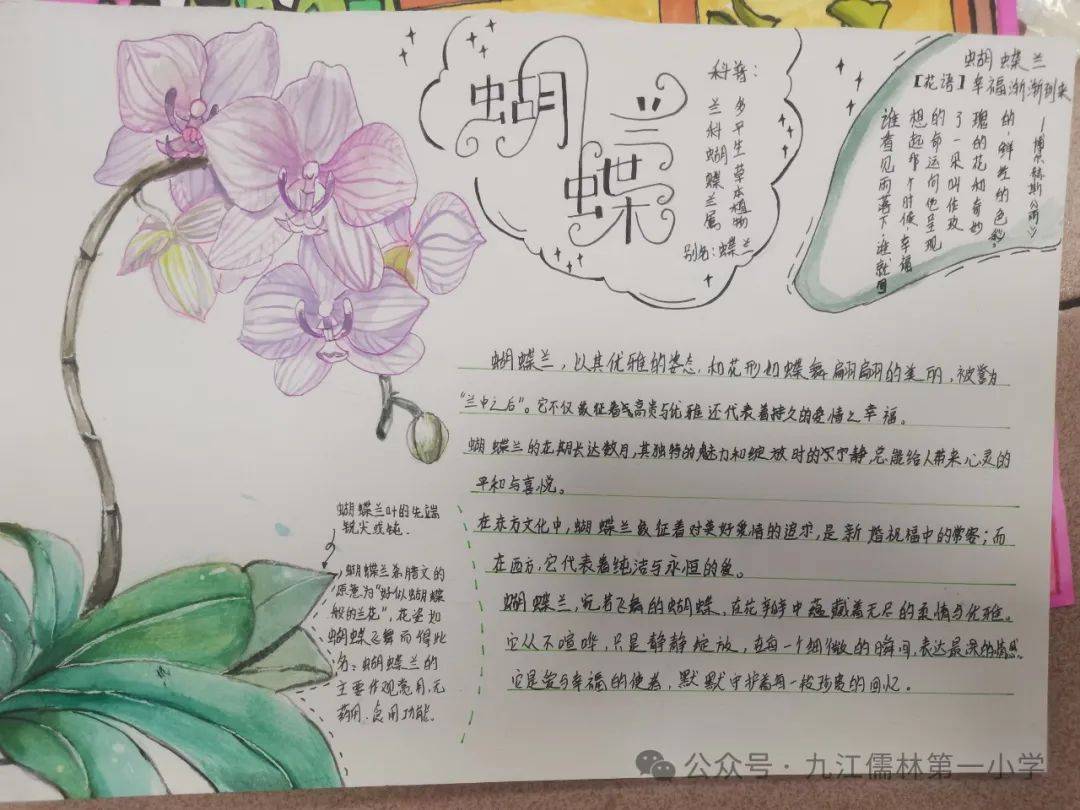 蝴
蝶
兰
科普：
多年生草本植物
兰科蝴蝶兰属
别名：蝴蝶兰
蝴蝶兰
【花语】幸福渐渐到来
谁看见雨落下谁就回
想起那个时候，幸福
的命运向他呈现
了一朵叫作玫
瑰的花和奇妙
的，鲜红的色彩。
——博尔赫斯《雨》
蝴蝶兰，以其优雅的姿态，和花形如蝶舞翩翩的美丽，被誉为
“兰中之后”。它不仅象征着高贵与优雅还代表着持久的爱情与幸福。
蝴蝶兰的花期长达数月，其独特的魅力和绽放时的宁静，总能给人带来心灵的
平和与喜悦。
在东方文化中，蝴蝶兰象征着对美好爱情的追求，是新婚祝福中的常客；而
在西方，它代表着纯洁与永恒的爱。
蝴蝶兰，宛若飞舞的蝴蝶，在花瓣中蕴藏着无尽的柔情与优雅。
它从不喧哗，只是静静绽放，在每一个细微的瞬间，表达最深的情感。
它是爱与幸福的使者，默默守护着每一段珍贵的回忆。
蝴蝶兰叶的先端
锐尖或钝．
蝴蝶兰希腊文的
原意为“好似蝴蝶
般的兰花”，花姿如
蝴蝶飞舞而得此
名；蝴蝶兰的
主要作观赏用，无
药用、食用功能．
公众号·九江儒林第一小学